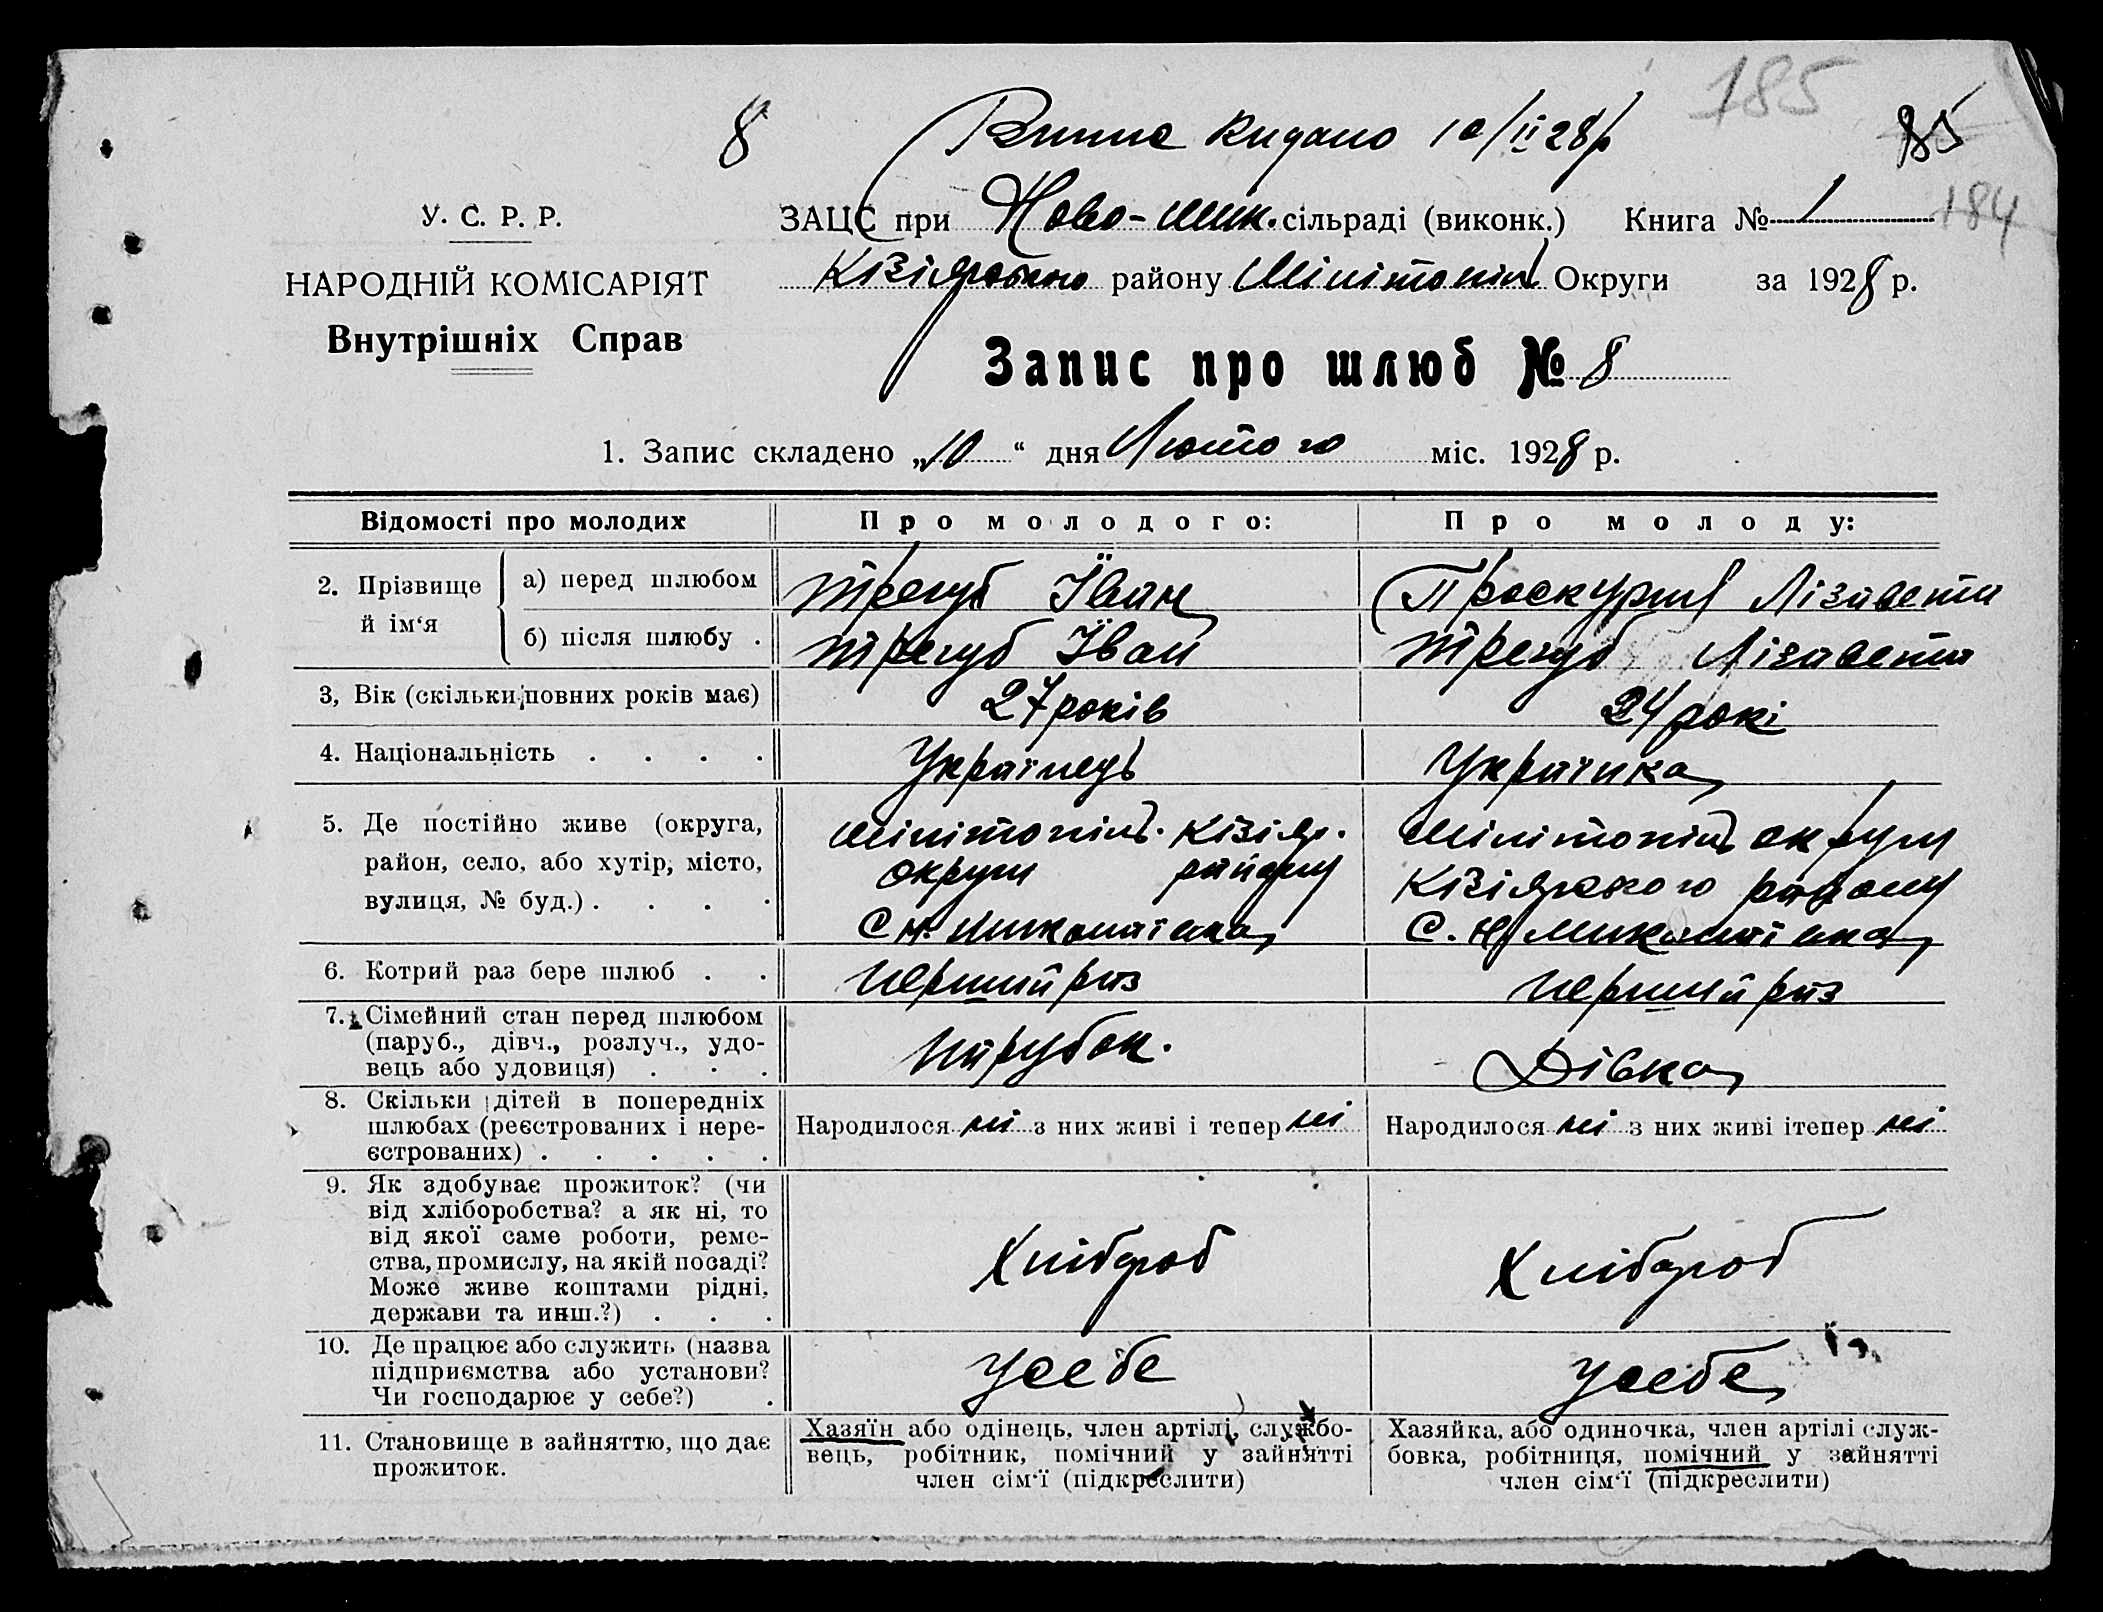 185
8 Випис видано 10/II 28 р
85
У. С. Р. Р.
ЗАЦС при Ново-Мик. сільраді (виконк.) Книга № 1
184
НАРОДНІЙ КОМІСАРІЯТ
Кізіярського району Мілітопіл Округи за 1928 р.
Внутрішніх Справ
Запис про шлюб № 8
1. Запис складено „10“ дня Лютого міс. 1928 р.
Відомості про молодих Про молодого: Про молоду:
2. Прізвище й ім‘я
а) перед шлюбом Трегуб Їван Лізавета
б) після шлюбу . Трегуб Їван Трегуб Лізавета
3, Вік (скільки повних років має) 27 років 24 рокі
4. Національність . . . . Українець Українка
5. Де постійно живе (округа, район, село, або хутір, місто, вулиця, № буд.) . . . .
Мілітопіл. Кізіяр.
округи району
С Н. Миколаївка
Мілітопіл округи
Кізіярского району
С. Н Миколаївка
6. Котрий раз бере шлюб . . Перший раз Перший раз
7. Сімейний стан перед шлюбом
(паруб., дівч., розлуч., удо-
вець або удовиця) . . . Парубок. Дівка
8. Скільки дітей в попередніх
шлюбах (реєстрованих і нере-
єстрованих) . . . . .
Народилося ні з них живі і тепер ні Народилося ні з них живі ітепер ні
9. Як здобуває прожиток? (чи
від хліборобства? а як ні, то
від якої саме роботи, реме-
ства, промислу, на якій посаді?
Може живе коштами рідні,
держави та инш.?) . . .
Хлібороб Хлібороб
10. Де працює або служить (назва
підприємства або установи?
Чи господарює у себе?) .
Усебе Усебе
11. Становище в зайняттю, що дає
прожиток.
Хазяїн або одінець, член артілі, службо-
вець, робітник, помічний у зайнятті
член сім‘ї (підкреслити)
Хазяйка, або одиночка, член артілі служ-
бовка, робітниця, помічний у зайнятті
член сім‘ї (підкреслити)